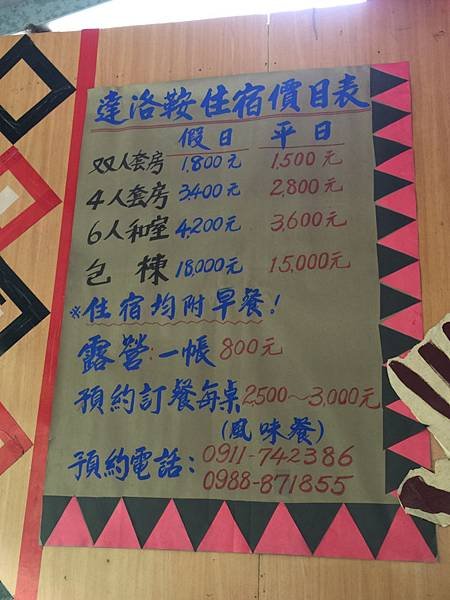 達洛鞍住宿價目表
假日 平日
双人套房 1,800元 1,500元
4人套房 3,400元 2,800元
6人和室 4,200元 3,600元
包棟 18,000元 15,000元
※住宿均附早餐！
露營：一帳 800元
預約訂餐每桌2,500～3,000元
(風味餐)
預約電話：0911-742386
0988-871855